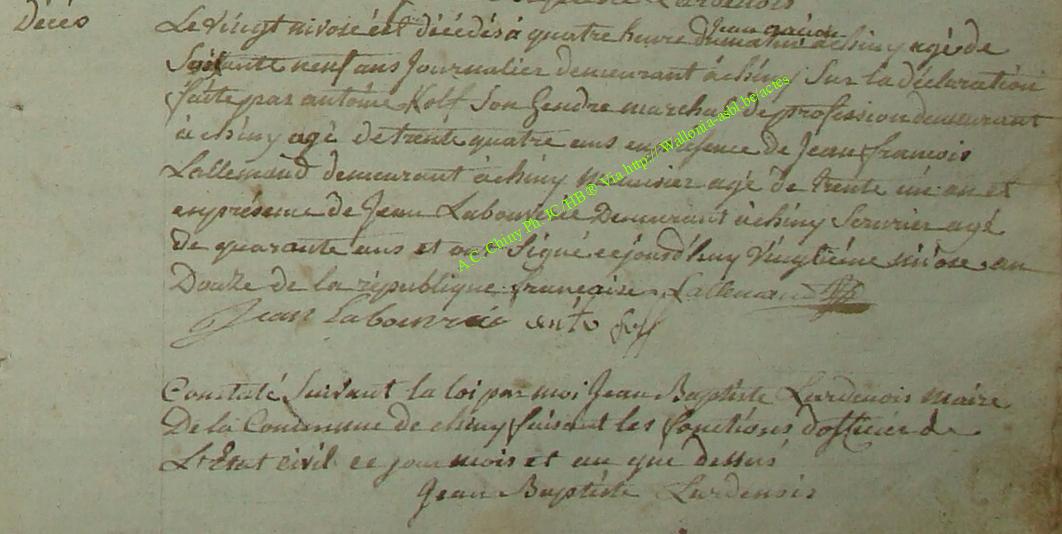 Décès
Le vingt nivose est décédés à quatre heure du matin à chiny agé de
Soixante neuf ans Journalier demeurant à chiny, Sur la déclaration
faite par antoine Kolf Son Gendre marchal de profession demeurant
à chiny agé de trente quatre ans en présence de Jean francois
Lallemand demeurant à chiny agé de trente un an et
en présence de Jean Labouverie Demeurant à chiny agé
de quarante ans et ont Signé ce jourd'huy Vingtième nivose an
Douze de la république française Lallemand
Jean Labouverie
Constaté Suivant la loi par moi Jean Baptiste Lardenois maire
De la Commune de chiny faisant les fonctions d'officier de
L'Etat civil ce jour mois et an que dessus
Jean Baptiste Lardenois
A C Chiny Ph. JC HB ® Via http:// Wallonia-asbl.be/actes